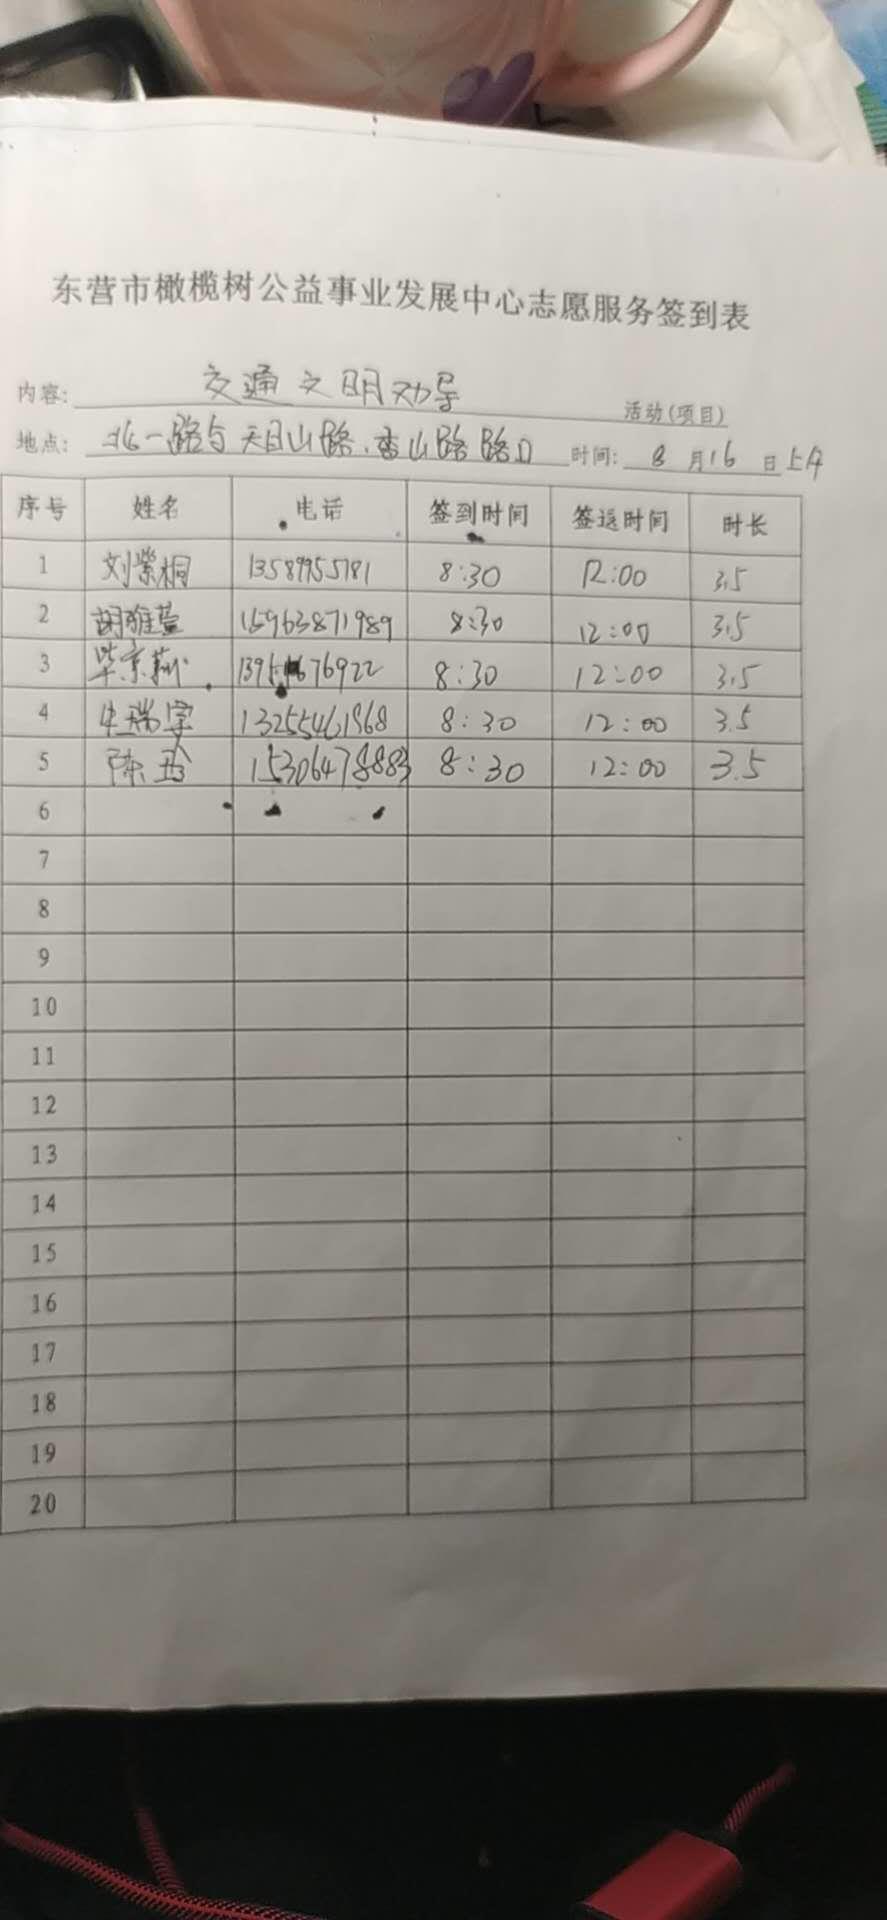 东营市橄榄树公益事业发展中心志愿服务签到表
内容: 交通文明劝导 活动(项目)
地点: 北一路与天目山路、香山路路口 时间: 8 月 16 日上午
序号 姓名 电话 签到时间 签退时间 时长
1 刘紫桐 13589955781 8:30 12:00 3.5
2 胡雅萱 15963871989 8:30 12:00 3.5
3 8:30 12:00 3.5
4 牛瑞字 13255461868 8:30 12:00 3.5
5 陈玲 15306478883 8:30 12:00 3.5
6
7
8
9
10
11
12
13
14
15
16
17
18
19
20